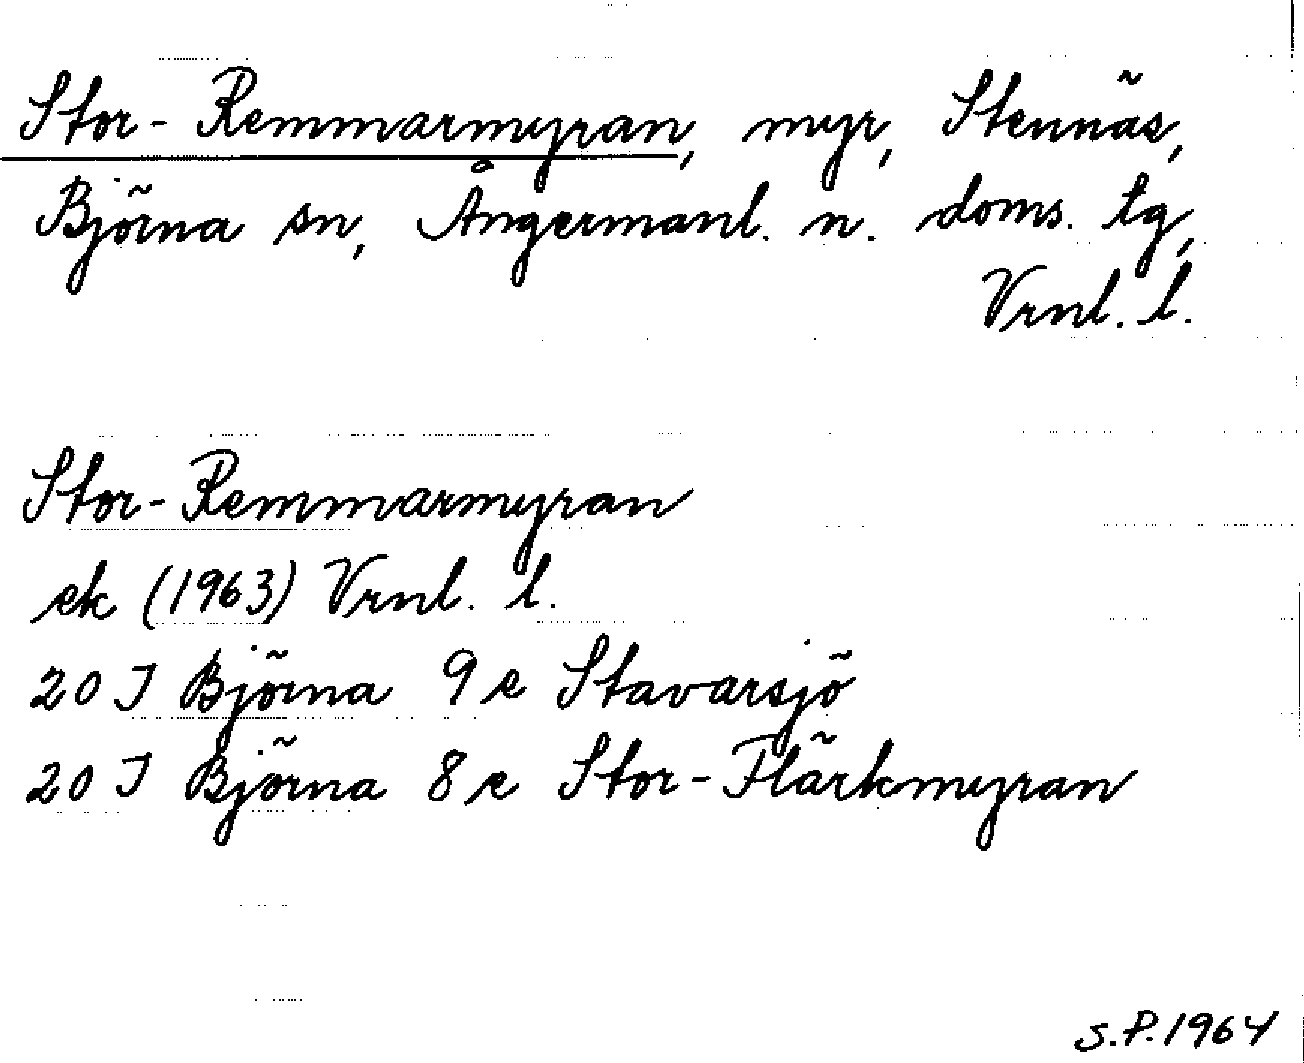 Stor-Remmarmyran, myr, Stennäs,
Björna sn, Ångermanl. n. doms. tg,
Vrnl. l.
Stor-Remmarmyran
ek (1963) Vrnl. l.
20 J Björna 9 e Stavarsjö
20 J Björna 8 e Stor-Flärkmyran
S.P. 1964